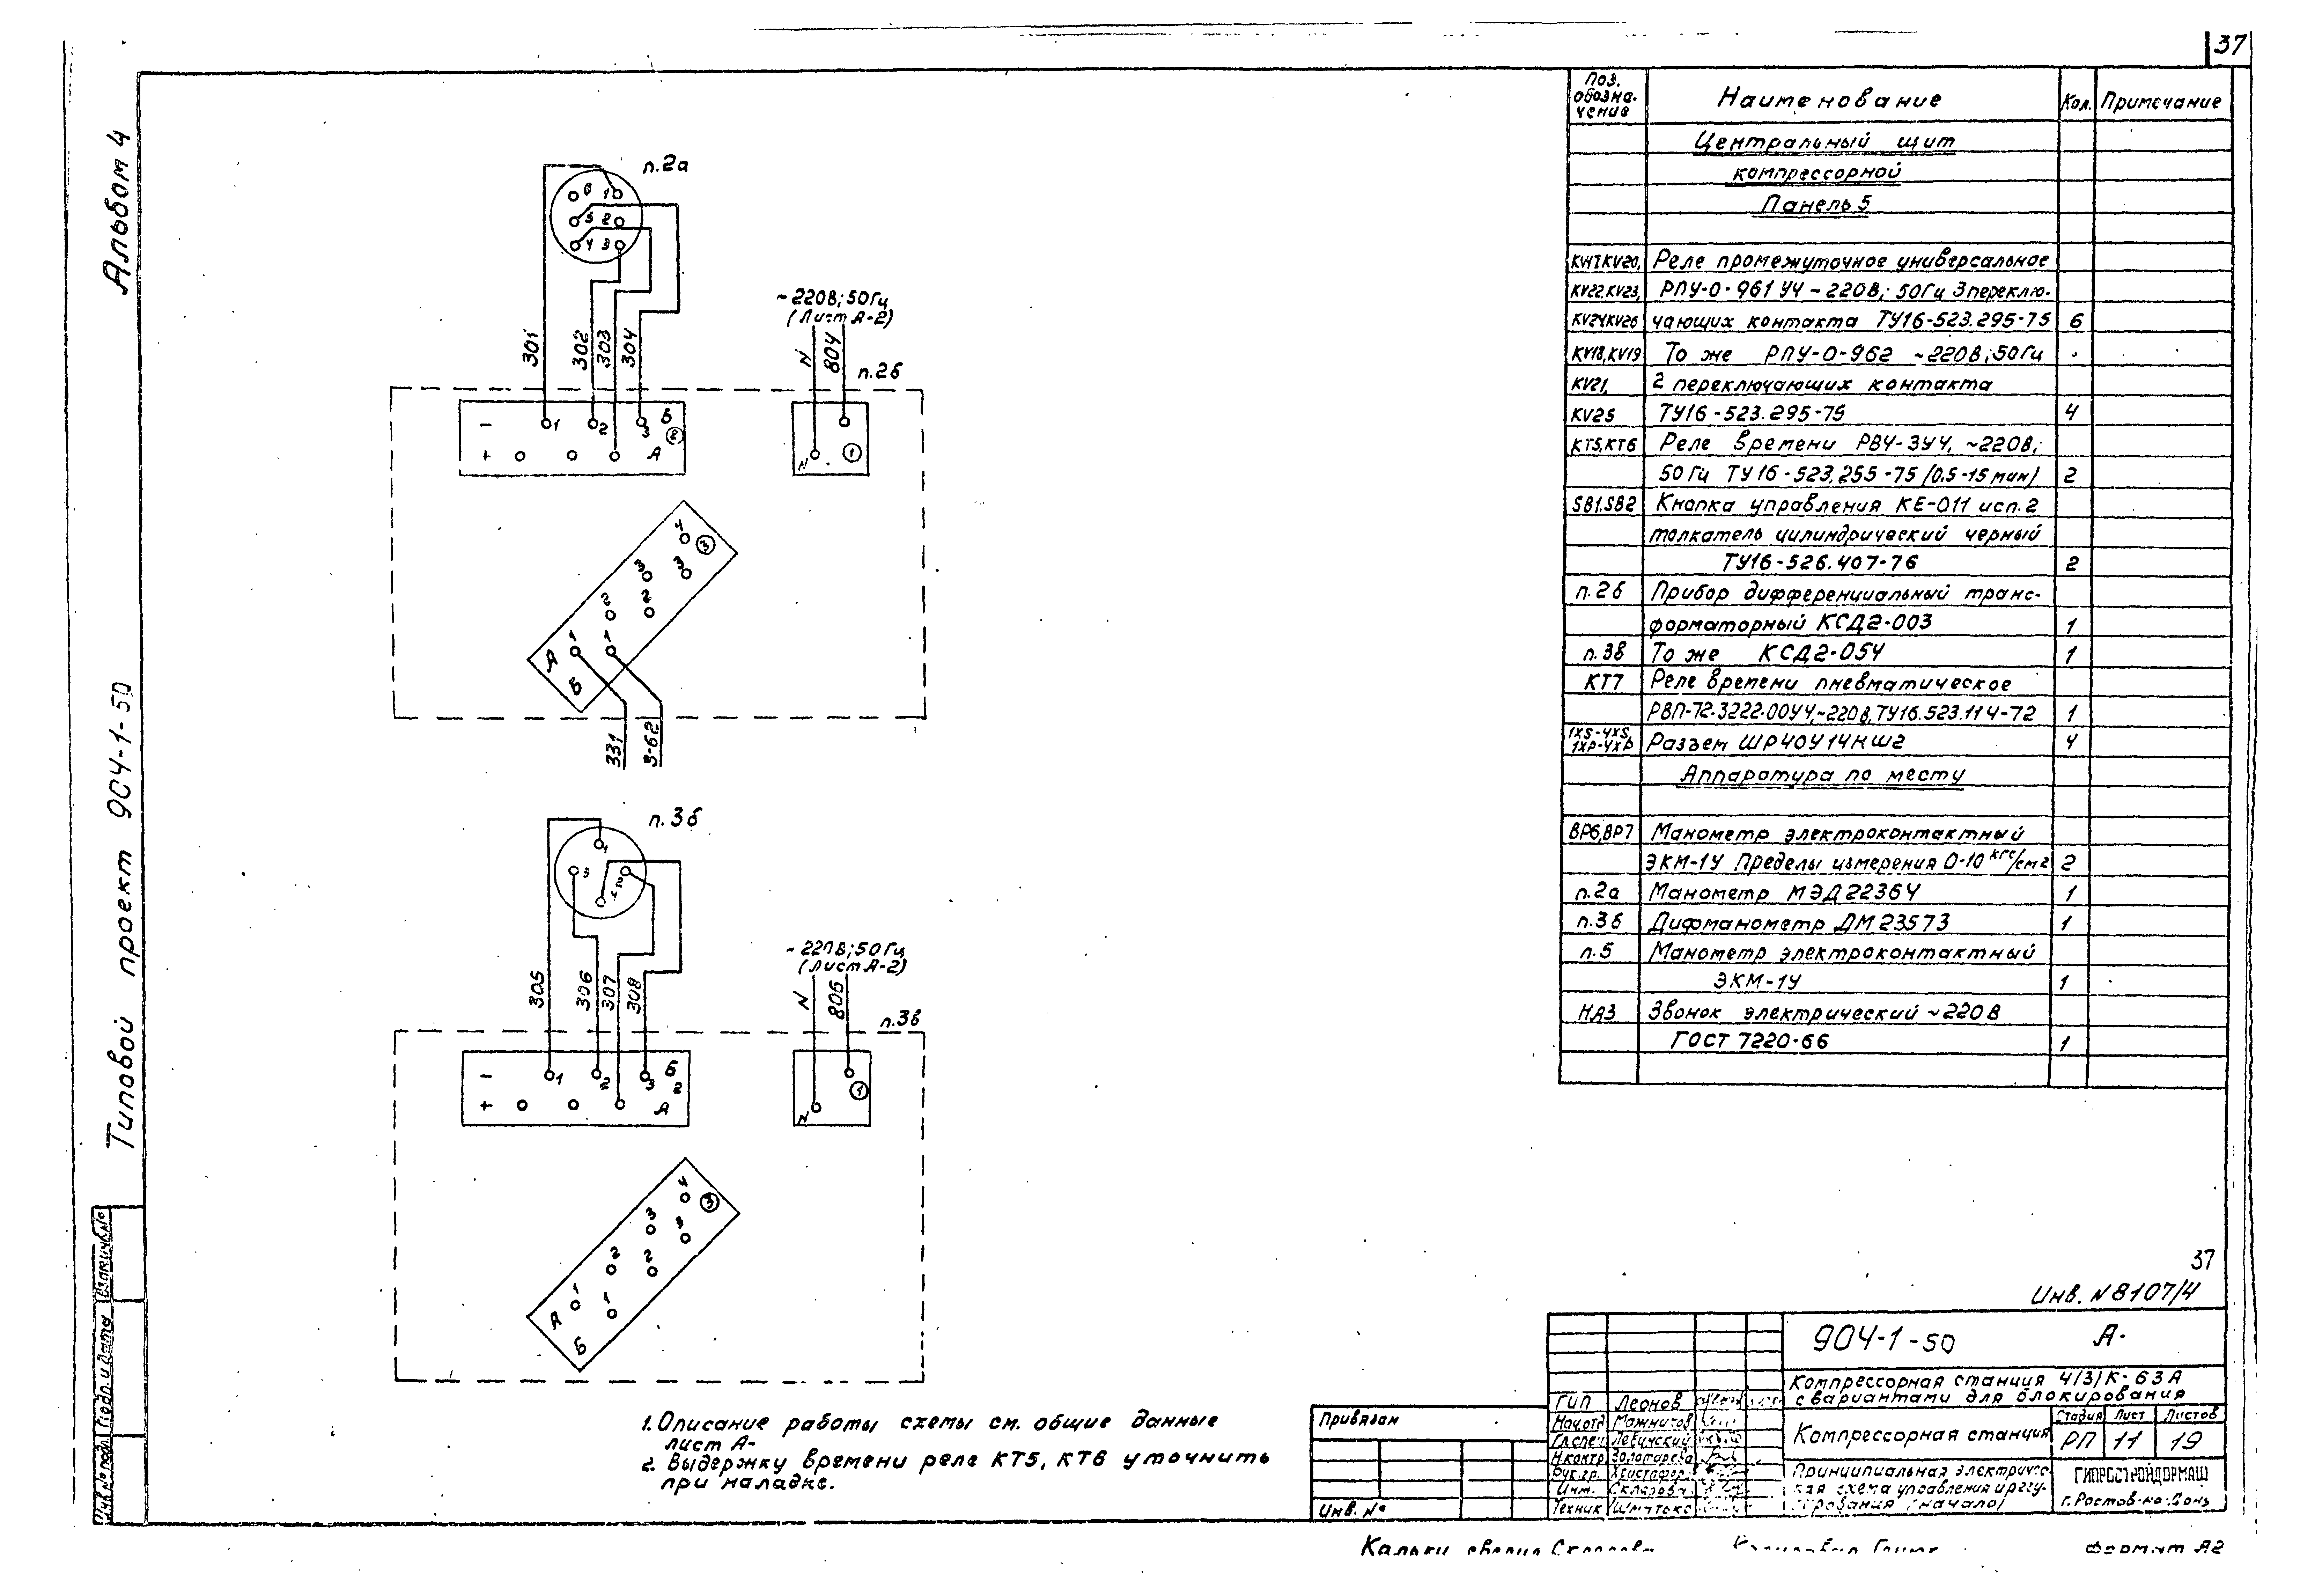 37
Альбом 4
Типовой проект 904-1-50
п.2а
6 1
5 2
4 3
~220В; 50Гц
(Лист А-2)
301
302
303
304
N
804
п.2б
- 1 2 3 Б
2
+ А
N 1
4
3
3 3
2 2
1 1
А
Б
331
3-62
п.3б
1
3
2
4
~220В; 50Гц
(Лист А-2)
305
306
307
308
N
806
п.3в
- 1 2 3 Б
2
+ А
N 1
4
3
3 3
2 2
1 1
А
Б
1. Описание работы схемы см. общие данные
лист А-
2. Выдержку времени реле КТ5, КТ6 уточнить
при наладке.
Поз. обозна-чение Наименование Кол. Примечание
Центральный щит
компрессорной
Панель 5
KV17,KV20, Реле промежуточное универсальное
KV22,KV23, РПУ-0-961 У4 ~220В; 50Гц 3 переклю-
KV24,KV26 чающих контакта ТУ16-523.295-75 6
KV18,KV19 То же РПУ-0-962 ~220В; 50Гц
KV21, 2 переключающих контакта
KV25 ТУ16-523.295-75 4
КТ5,КТ6 Реле времени РВ4-3У4, ~220В;
50Гц ТУ16-523.255-75 (0.5-15 мин) 2
SB1,SB2 Кнопка управления КЕ-011 исп.2
толкатель цилиндрический черный
ТУ16-526.407-76 2
п.2б Прибор дифференциальный транс-
форматорный КСД2-003 1
п.3в То же КСД2-054 1
КТ7 Реле времени пневматическое
РВП-72-3222-00У4, ~220В, ТУ16.523.114-72 1
1XS-4XS, 1XP-4XP Разъем ШР40У14НШ2 4
Аппаратура по месту
ВР6,ВР7 Манометр электроконтактный
ЭКМ-1У Пределы измерения 0-10 кгс/см2 2
п.2а Манометр МЭД 22364 1
п.3б Дифманометр ДМ 23573 1
п.5 Манометр электроконтактный
ЭКМ-1У 1
НА3 Звонок электрический ~220В
ГОСТ 7220-66 1
37
Инв. N 8107/4
904-1-50 А-
Компрессорная станция 4(3)К-63А
с вариантами для блокирования
Компрессорная станция
Стадия Лист Листов
РП 11 19
Принципиальная электричес-
кая схема управления и регу-
лирования (начало)
ГИПРОСТРОЙДОРМАШ
г. Ростов-на-Дону
ГИП Леонов
Нач.отд Можников
Гл.спец Левинский
Н.контр Золотарева
Рук.гр. Христофор.
Инж.
Техник
Привязан
Инв. №
Взам.инв.№
Подп. и дата
Инв.№ подл.
Формат А2